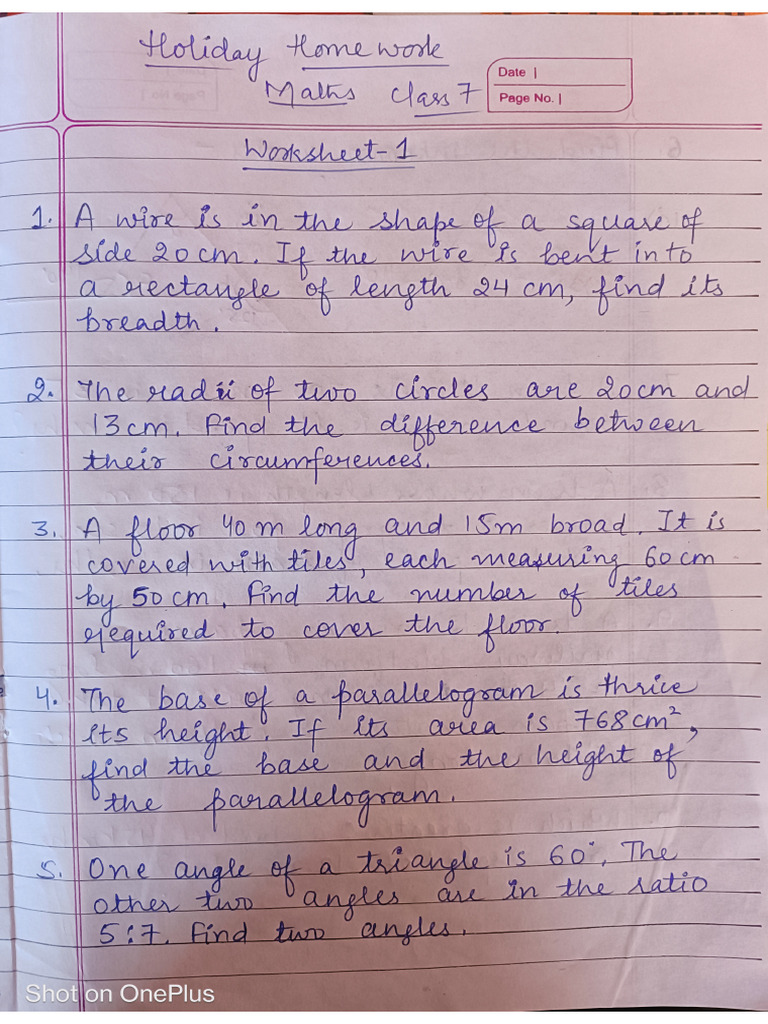 Holiday Homework
Maths Class 7
Date |
Page No. |
Worksheet-1
1. A wire is in the shape of a square of
side 20cm. If the wire is bent into
a rectangle of length 24 cm, find its
breadth.
2. The radii of two circles are 20cm and
13cm. Find the difference between
their circumferences.
3. A floor 40m long and 15m broad. It is
covered with tiles, each measuring 60cm
by 50cm. Find the number of tiles
required to cover the floor.
4. The base of a parallelogram is thrice
its height. If its area is 768cm²,
find the base and the height of
the parallelogram.
5. One angle of a triangle is 60°. The
other two angles are in the ratio
5:7. Find two angles.
Shot on OnePlus